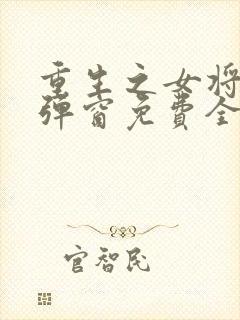 重生之女将
弹窗免费全
官智民